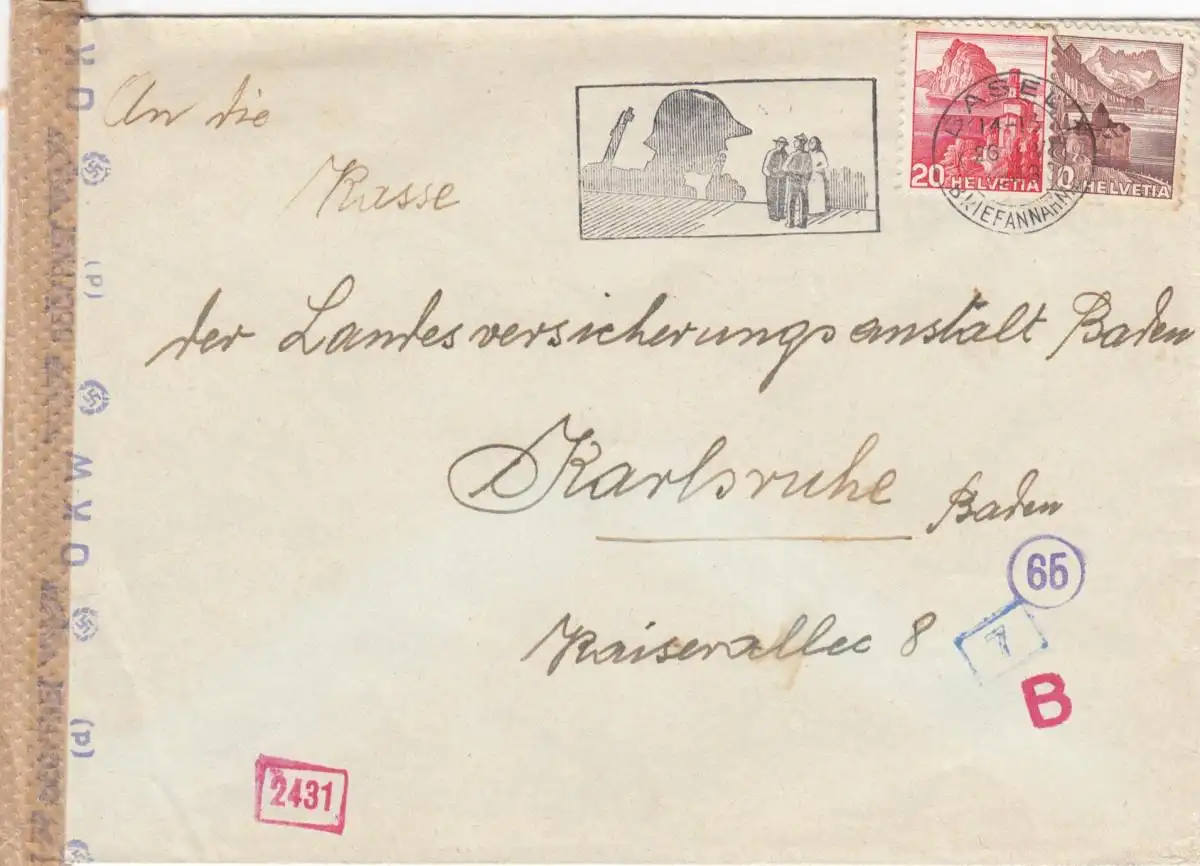 An die
Kasse
der Landesversicherungsanstalt Baden
Karlsruhe Baden
Kaiserallee 8
20 HELVETIA
10 HELVETIA
BASEL
BRIEFANNAHME
66
7
B
2431
O K W
(d)
(d)
GEÖFFNET